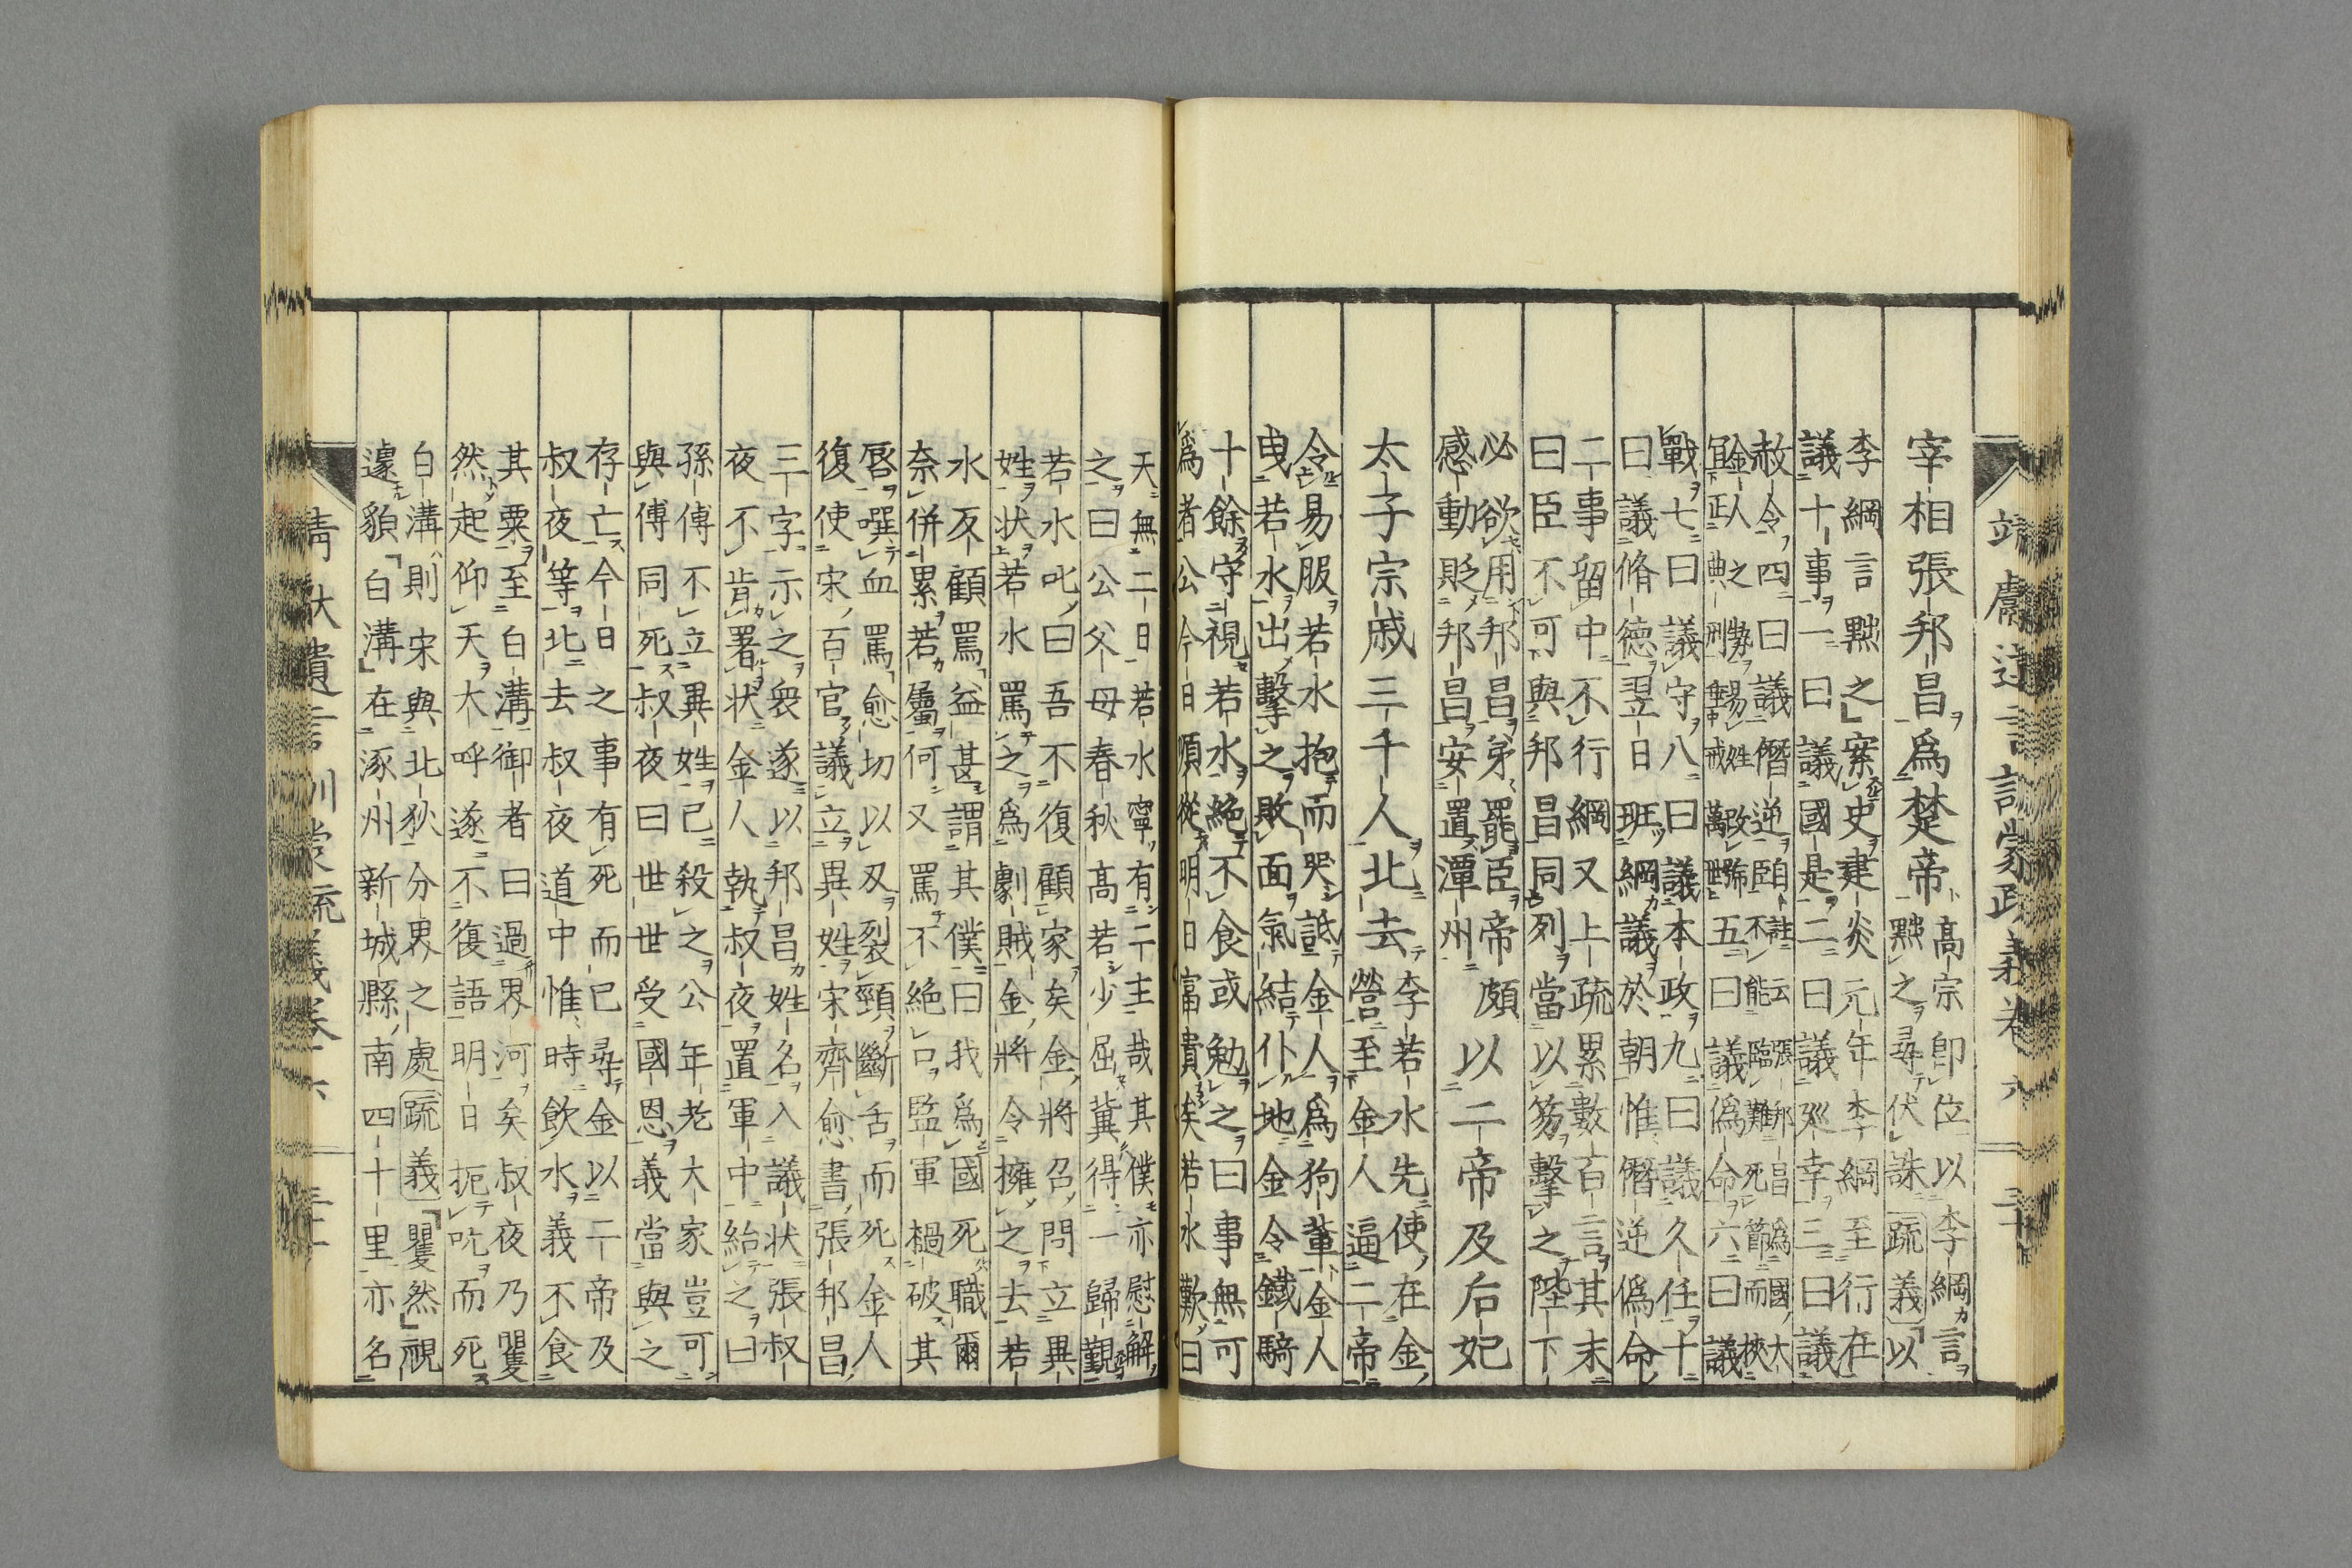 宰相張邦昌爲楚帝
高宗即位以李綱言
黜之尋伏誅疏義以
李綱言黜之案史建炎元年李綱至行在
議十事一曰議國是二曰議巡幸三曰議
赦令四曰議僭逆
金人之勢易姓改號
宜正典刑垂戒萬世五曰議僞命六曰議
戰七曰議守八曰議本政九曰議久任十
曰議脩德翌日班綱議於朝惟僭逆僞命
二事留中不行綱又上疏累數百言其末
曰臣不可與邦昌同列當以笏擊之陛下
必欲用邦昌弟罷臣帝頗
感動貶邦昌安置潭州
以二帝及后妃
太子宗戚三千人北去
李若水先使在金
營至金人逼二帝
令易服若水抱而哭詆金人爲狗輩金人
曳若水出擊之敗面氣結仆地金令鐵騎
十餘守視若水絶不食或勉之曰事無可
爲者公今日順從明日富貴矣若水歎曰
天無二日若水寧有二主哉其僕亦慰解
之曰公父母春秋高若少屈冀得一歸覲
若水叱曰吾不復顧家矣金將召問立異
姓状若水罵之爲劇賊金將令擁之去若
水反顧罵益甚謂其僕曰我爲國死職爾
奈併累若屬何又罵不絶口監軍檛破其
唇噀血罵愈切以刃裂頸斷舌而死金人
復使宋百官議立異姓宋齊愈書張邦昌
三字示之衆遂以邦昌姓名入議状張叔
夜不肯署状金人執叔夜置軍中紿之曰
孫傅不立異姓已殺之公年老大家豈可
與傅同死叔夜曰世世受國恩義當與之
存亡今日之事有死而已尋金以二帝及
叔夜等北去叔夜道中惟時飲水義不食
其粟至白溝御者曰過界河矣叔夜乃矍
然起仰天大呼遂不復語明日扼吭而死
白溝則宋與北狄分界之處疏義矍然視
遽貌白溝在涿州新城縣南四十里亦名